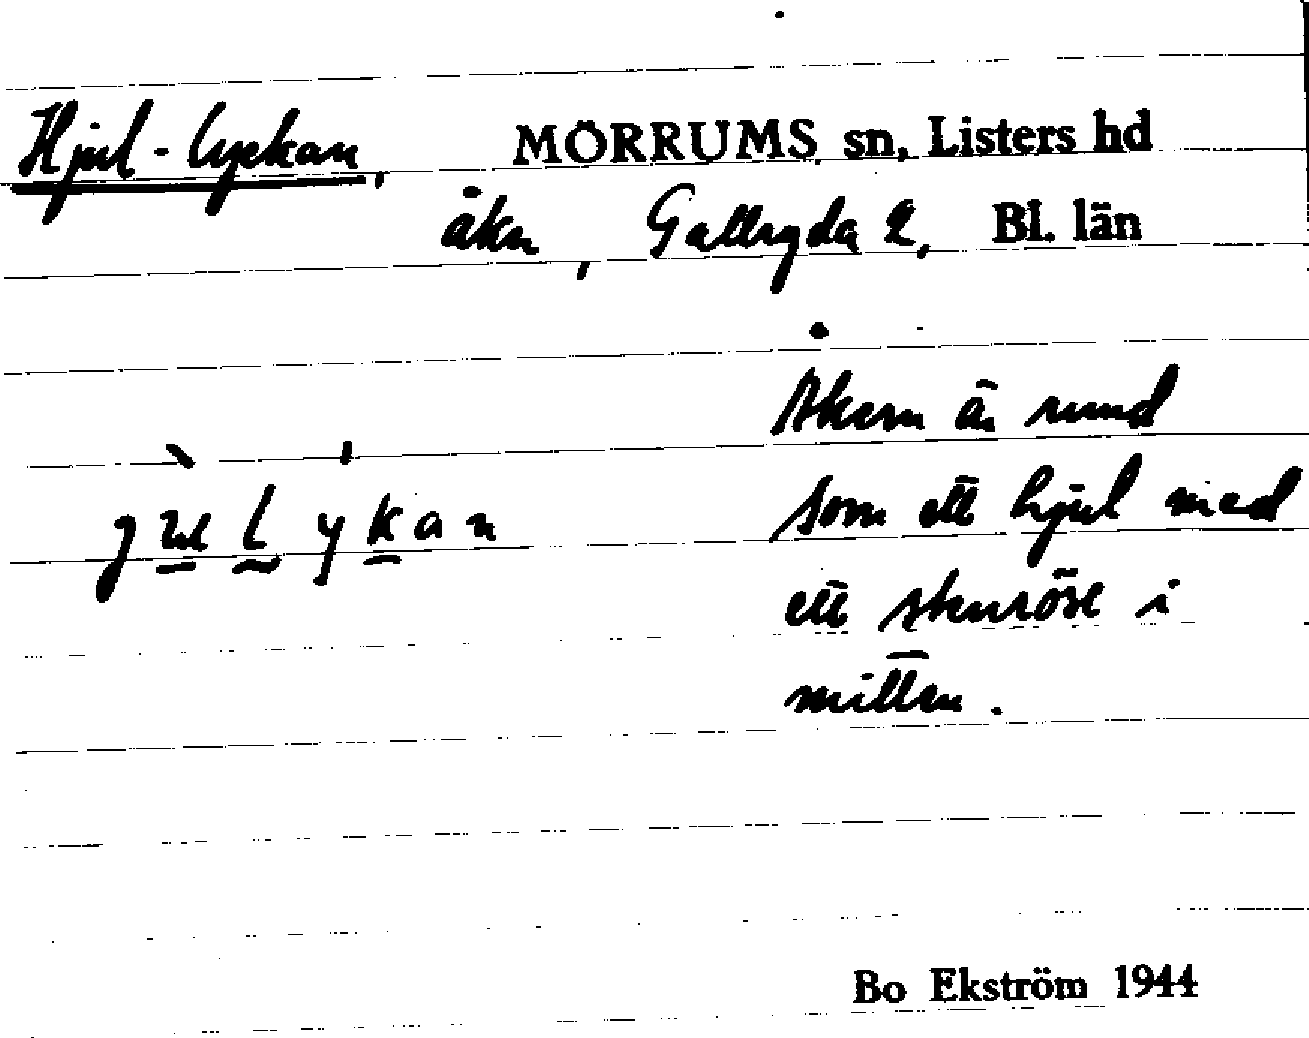 Hjul-lyckan, MÖRRUMS sn, Listers hd
åker, Gallryda 2, Bl. län
Åkern är rund
som ett hjul med
ett stenröse i
mitten.
Bo Ekström 1944